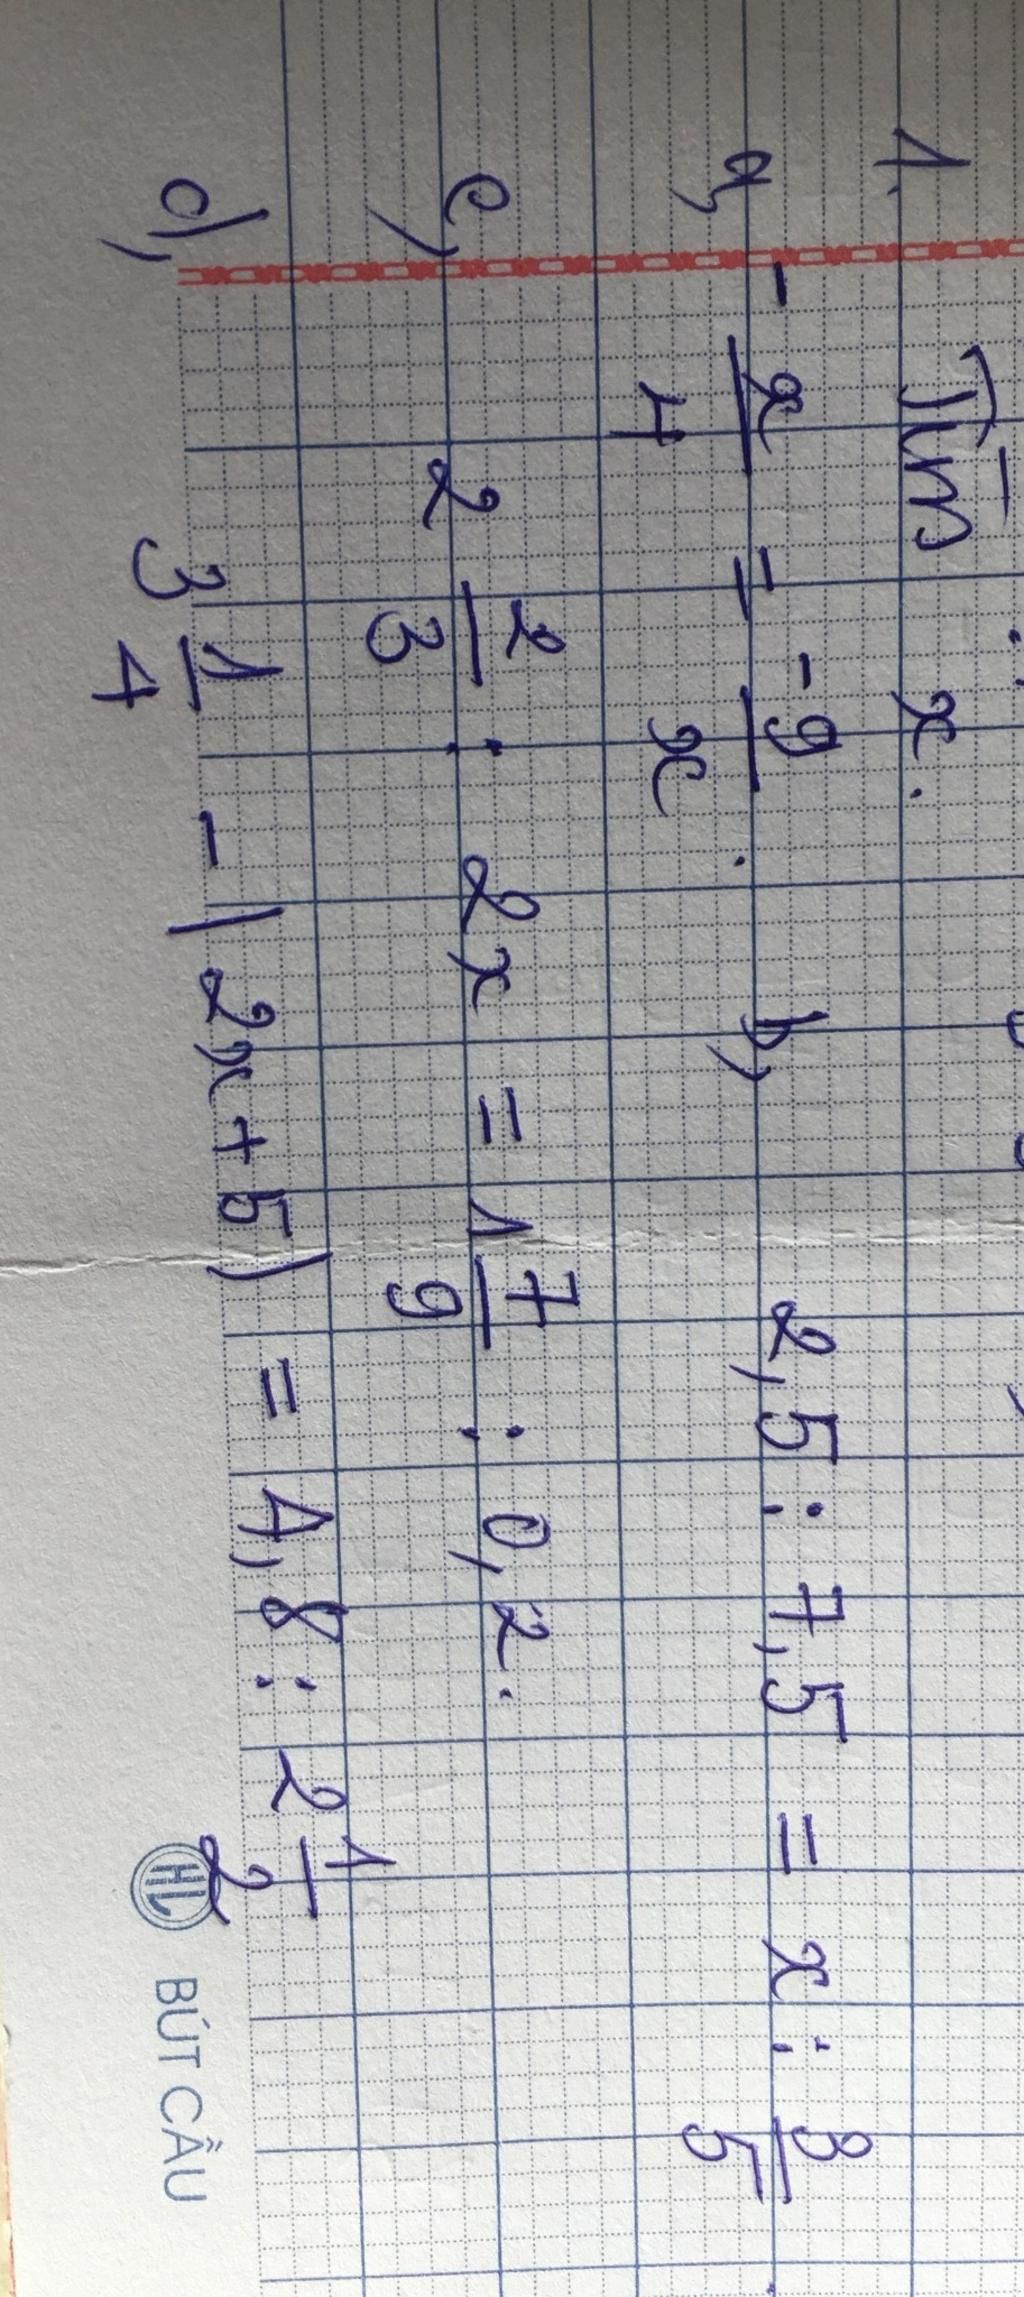 1. Tìm x.
a, -x/4 = -9/x. b, 2,5 : 7,5 = x : 3/5
c, 2 2/3 : 2x = 1 7/9 : 0,2.
d, 3 1/4 - |2x + 5| = 4,8 : 2 1/2
HL BÚT CẦU